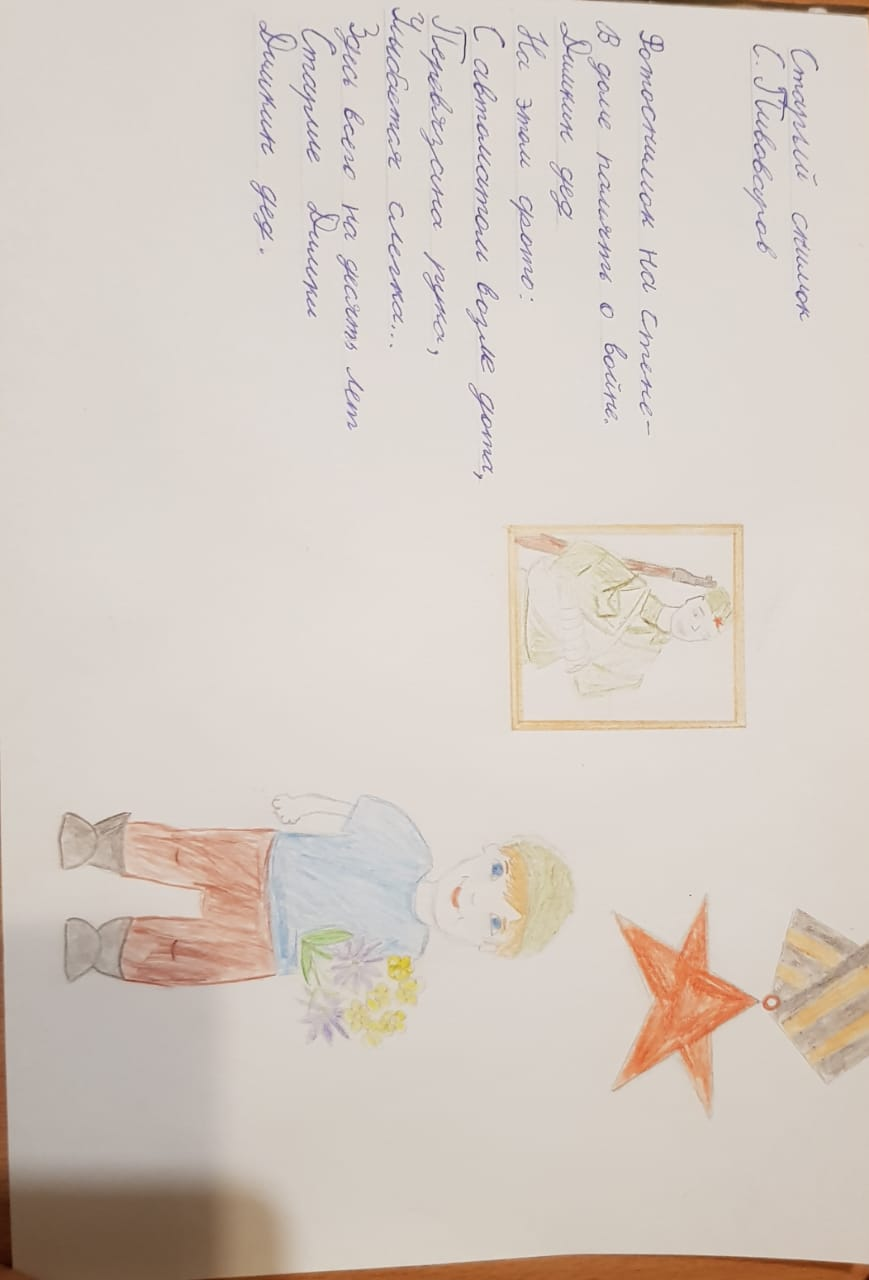 Старый снимок
С. Пивоваров
Фотоснимок на стене-
В доме память о войне.
Димкин дед
На этом фото:
С автоматом возле дота,
Перевязана рука,
Улыбается слегка...
Здесь всего на десять лет
Старше Димки
Димкин дед.